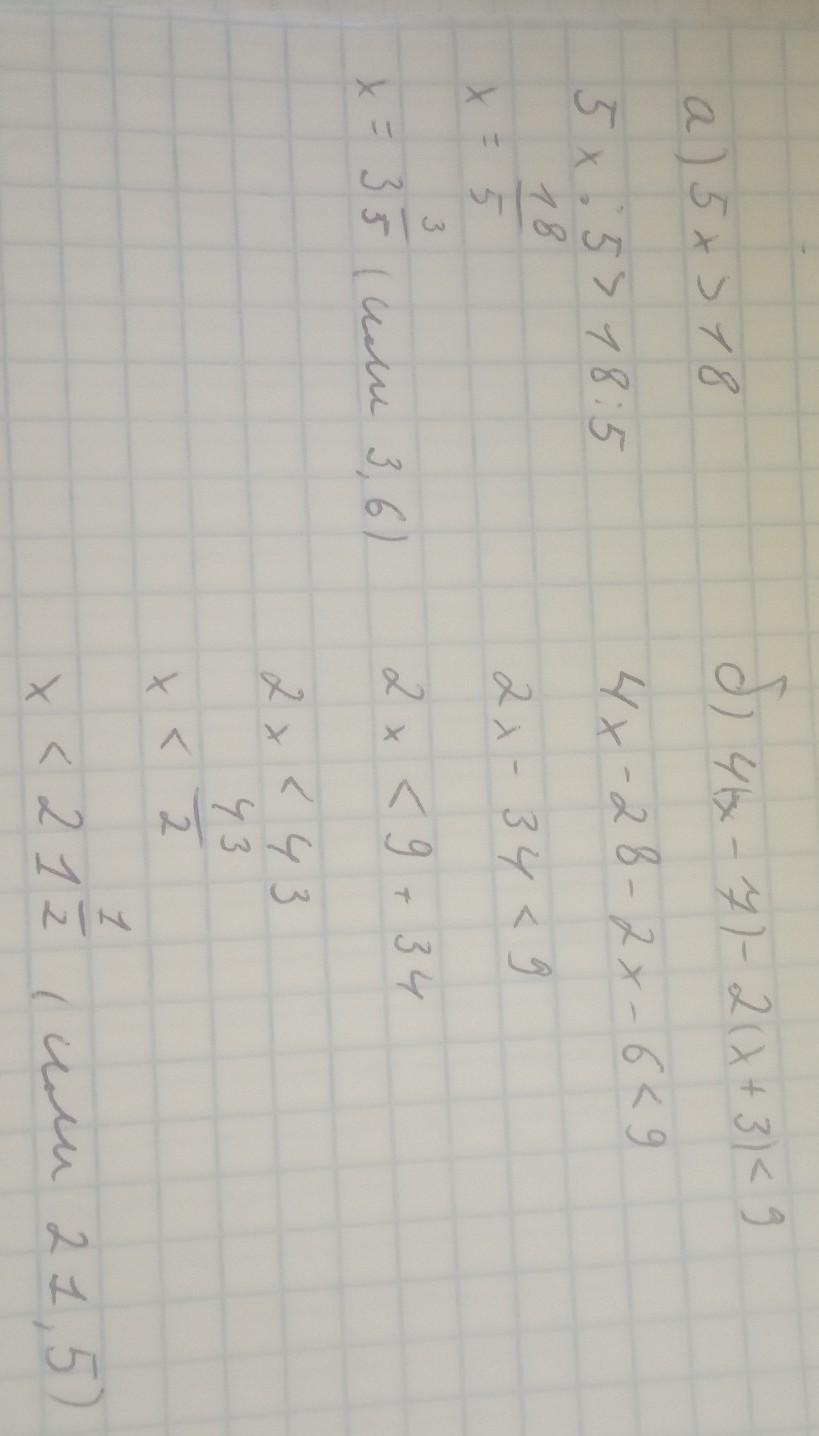 а) 5x > 18
5x : 5 > 18 : 5
x = 18/5
x = 3 3/5 (или 3,6)
б) 4(x - 7) - 2(x + 3) < 9
4x - 28 - 2x - 6 < 9
2x - 34 < 9
2x < 9 + 34
2x < 43
x < 43/2
x < 21 1/2 (или 21,5)